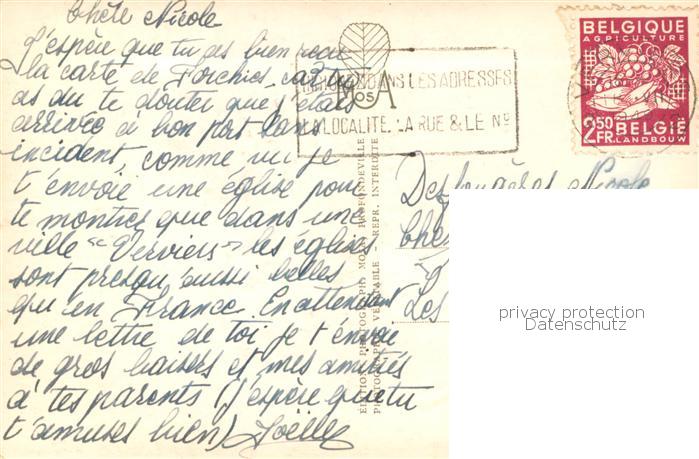 Chère Nicole
J'espère que tu as bien reçu
la carte de Forchies car tu
as du te douter que j'étais
arrivée à bon port sans
incident, comme vu je
t'envoie une église pour
te montrer que dans une
ville "Verviers" les églises
sont presqu'aussi belles
qu'en France. En attendant
une lettre de toi je t'envoie
de gros baisers et mes amitiés
à tes parents (J'espère que tu
t'amuses bien) Joëlle
DANS LES ADRESSES
LA LOCALITE, LA RUE & LE No
MOSA
PHOTO MOSA PROFONDEVILLE
VERITABLE - REPR. INTERDITE
BELGIQUE
AGRICULTURE
2.50 FR.
BELGIE
LANDBOUW
Desfougères Nicole
Chez
Les
privacy protection
Datenschutz